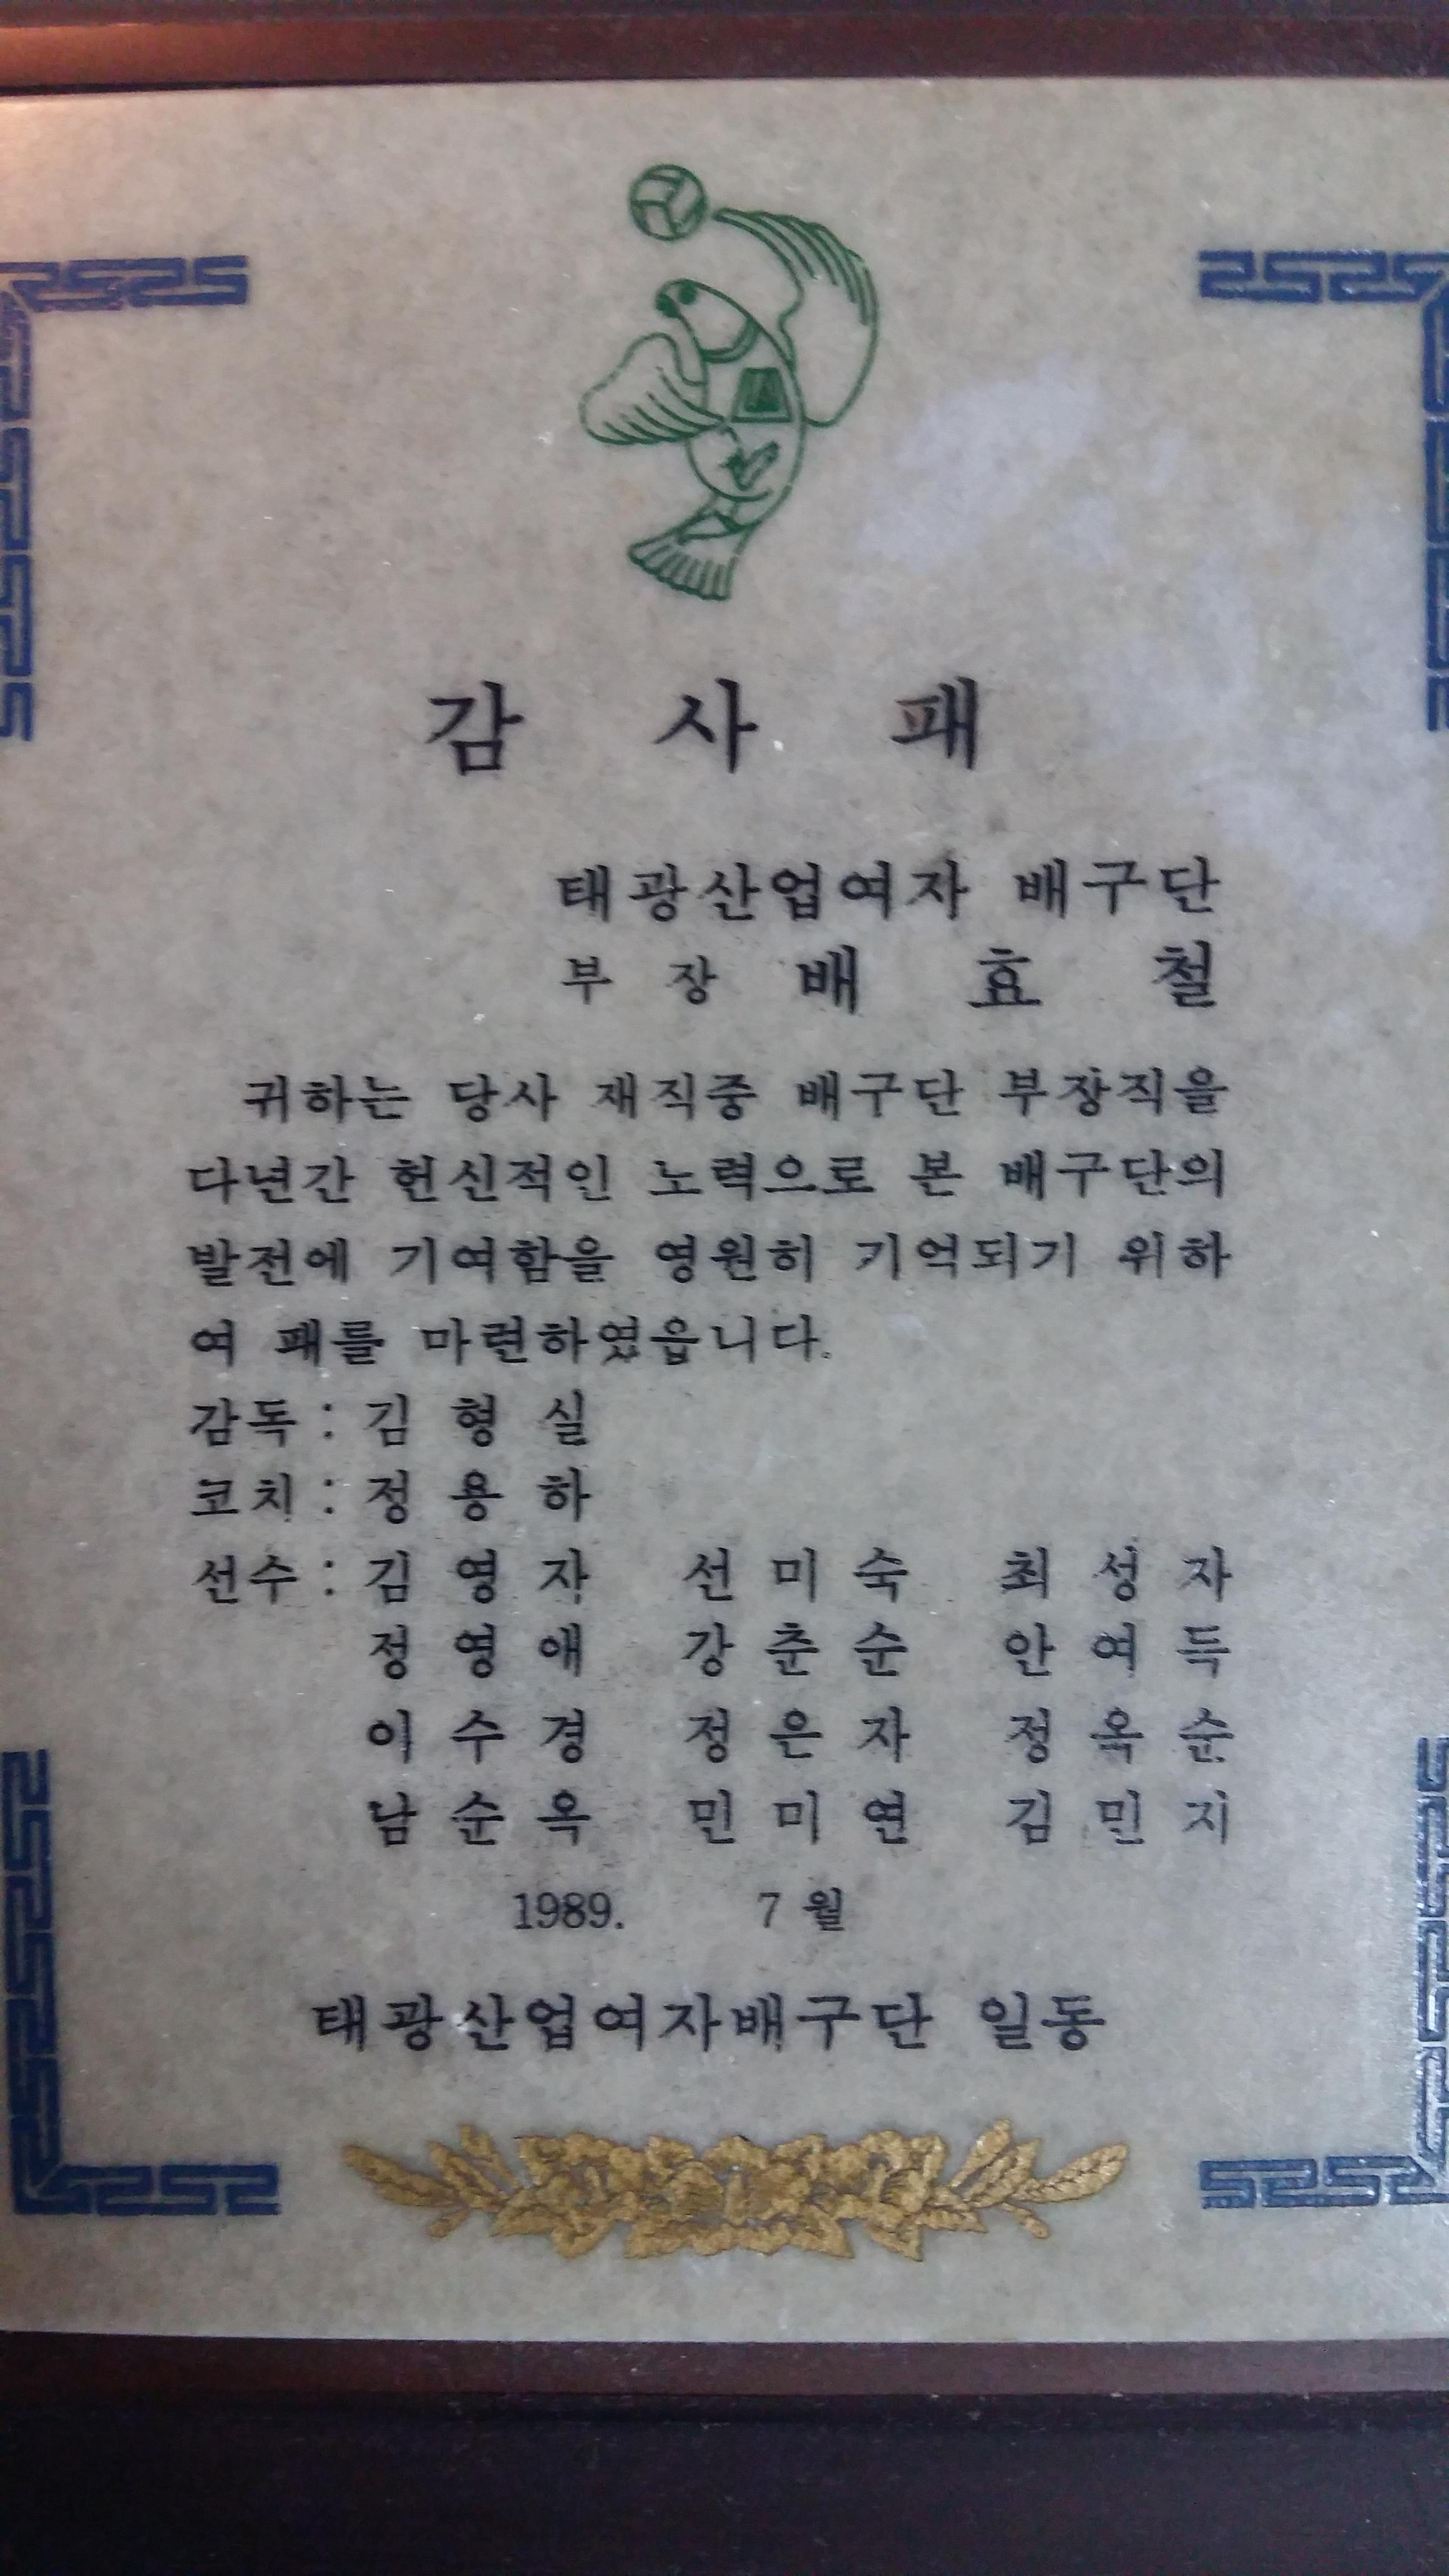 감 사 패
태광산업여자 배구단
부 장 배 효 철
귀하는 당사 재직중 배구단 부장직을
다년간 헌신적인 노력으로 본 배구단의
발전에 기여함을 영원히 기억되기 위하
여 패를 마련하였읍니다.
감독 : 김 형 실
코치 : 정 용 하
선수 : 김 영 자 선 미 숙 최 성 자
정 영 애 강 춘 순 안 여 득
이 수 경 정 은 자 정 옥 순
남 순 옥 민 미 연 김 민 지
1989. 7 월
태광산업여자배구단 일동